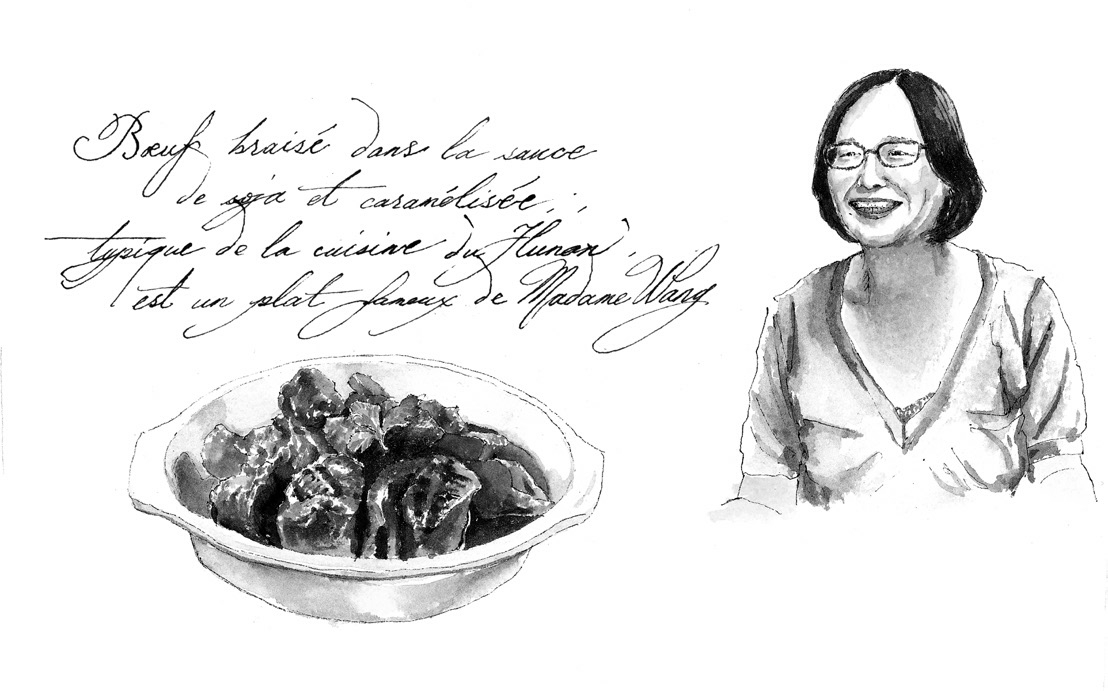 Bœuf braisé dans la sauce
de soja et caramélisée,
typique de la cuisine du Hunan,
est un plat fameux de Madame Wang